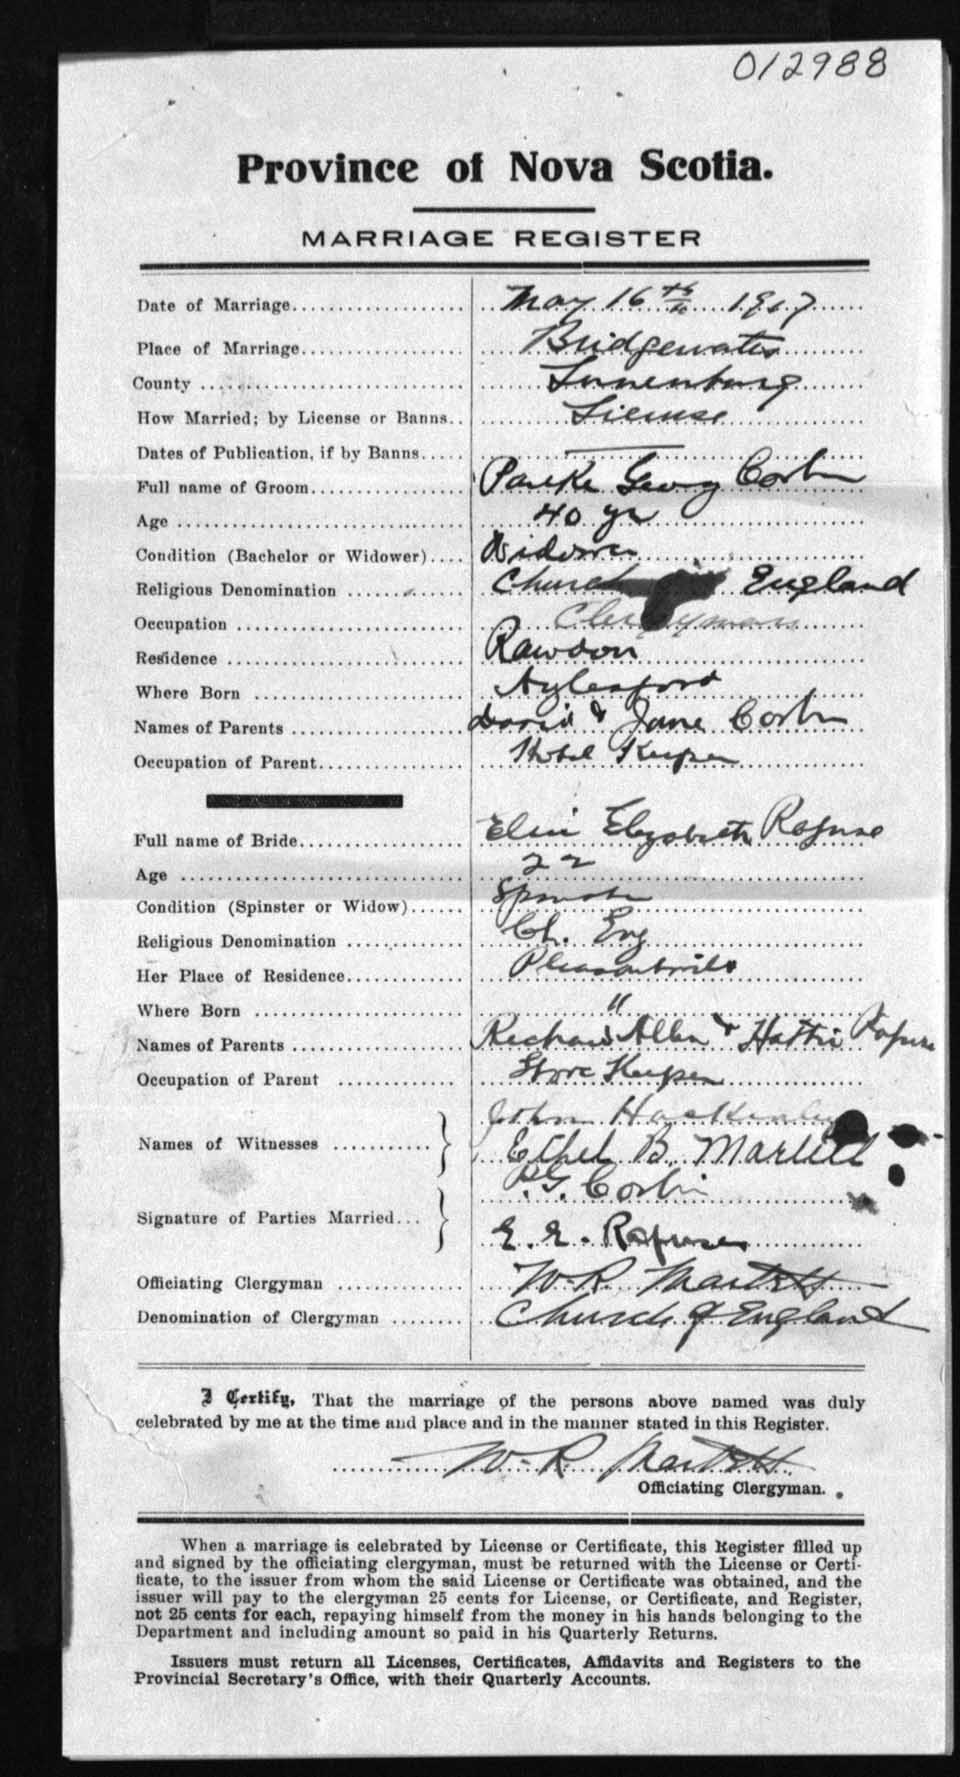 012988
Province of Nova Scotia.
MARRIAGE REGISTER
Date of Marriage May 16th 1917
Place of Marriage Bridgewater
County Lunenburg
How Married; by License or Banns License
Dates of Publication, if by Banns —
Full name of Groom George Corbin
Age 40 yr
Condition (Bachelor or Widower) Widower
Religious Denomination Church England
Occupation Clergyman
Residence Rawdon
Where Born Aylesford
Names of Parents David & Jane Corbin
Occupation of Parent Hotel Keeper
Full name of Bride Elizabeth Rafuse
Age 22
Condition (Spinster or Widow) Spinster
Religious Denomination Ch. Eng
Her Place of Residence Pleasantville
Where Born "
Names of Parents Allen & Hattie Rafuse
Occupation of Parent Store Keeper
John
Names of Witnesses Ethel B.
P.G. Corbin
Signature of Parties Married E. E. Rafuse
Officiating Clergyman W. R. Martell
Denomination of Clergyman Church of England
I Certify, That the marriage of the persons above named was duly
celebrated by me at the time and place and in the manner stated in this Register.
W. R. Martell
Officiating Clergyman.
When a marriage is celebrated by License or Certificate, this Register filled up
and signed by the officiating clergyman, must be returned with the License or Certi-
ficate, to the issuer from whom the said License or Certificate was obtained, and the
issuer will pay to the clergyman 25 cents for License, or Certificate, and Register,
not 25 cents for each, repaying himself from the money in his hands belonging to the
Department and including amount so paid in his Quarterly Returns.
Issuers must return all Licenses, Certificates, Affidavits and Registers to the
Provincial Secretary's Office, with their Quarterly Accounts.